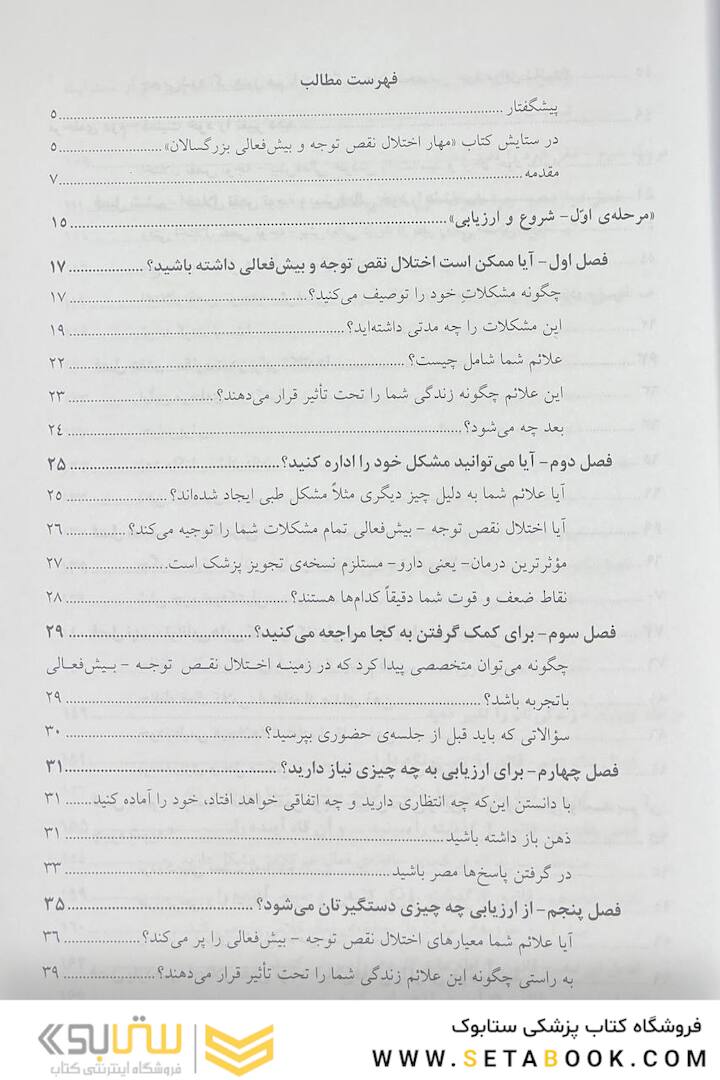 فهرست مطالب
پیشگفتار ..... ۵
در ستایش کتاب «مهار اختلال نقص توجه و بیش‌فعالی بزرگسالان» ..... ۵
مقدمه ..... ۷
«مرحله‌ی اوّل- شروع و ارزیابی» ..... ۱۵
فصل اول- آیا ممکن است اختلال نقص توجه و بیش‌فعالی داشته باشید؟ ..... ۱۷
چگونه مشکلاتِ خود را توصیف می‌کنید؟ ..... ۱۷
این مشکلات را چه مدتی داشته‌اید؟ ..... ۱۹
علائم شما شامل چیست؟ ..... ۲۲
این علائم چگونه زندگی شما را تحت تأثیر قرار می‌دهند؟ ..... ۲۳
بعد چه می‌شود؟ ..... ۲۴
فصل دوم- آیا می‌توانید مشکل خود را اداره کنید؟ ..... ۲۵
آیا علائم شما به دلیل چیز دیگری مثلاً مشکل طبی ایجاد شده‌اند؟ ..... ۲۵
آیا اختلال نقص توجه - بیش‌فعالی تمام مشکلات شما را توجیه می‌کند؟ ..... ۲۶
مؤثرترین درمان- یعنی دارو- مستلزم نسخه‌ی تجویز پزشک است ..... ۲۷
نقاط ضعف و قوت شما دقیقاً کدام‌ها هستند؟ ..... ۲۸
فصل سوم- برای کمک گرفتن به کجا مراجعه می‌کنید؟ ..... ۲۹
چگونه می‌توان متخصصی پیدا کرد که در زمینه اختلال نقص توجه - بیش‌فعالی
باتجربه باشد؟ ..... ۲۹
سؤالاتی که باید قبل از جلسه‌ی حضوری بپرسید؟ ..... ۳۰
فصل چهارم- برای ارزیابی به چه چیزی نیاز دارید؟ ..... ۳۱
با دانستن این‌که چه انتظاری دارید و چه اتفاقی خواهد افتاد، خود را آماده کنید ..... ۳۱
ذهن باز داشته باشید ..... ۳۱
در گرفتن پاسخ‌ها مصر باشید ..... ۳۳
فصل پنجم- از ارزیابی چه چیزی دستگیرتان می‌شود؟ ..... ۳۵
آیا علائم شما معیارهای اختلال نقص توجه - بیش‌فعالی را پر می‌کند؟ ..... ۳۶
به راستی چگونه این علائم زندگی شما را تحت تأثیر قرار می‌دهند؟ ..... ۳۹
فروشگاه کتاب پزشکی ستابوک
WWW.SETABOOK.COM
ستابوک
فروشگاه اینترنتی کتاب